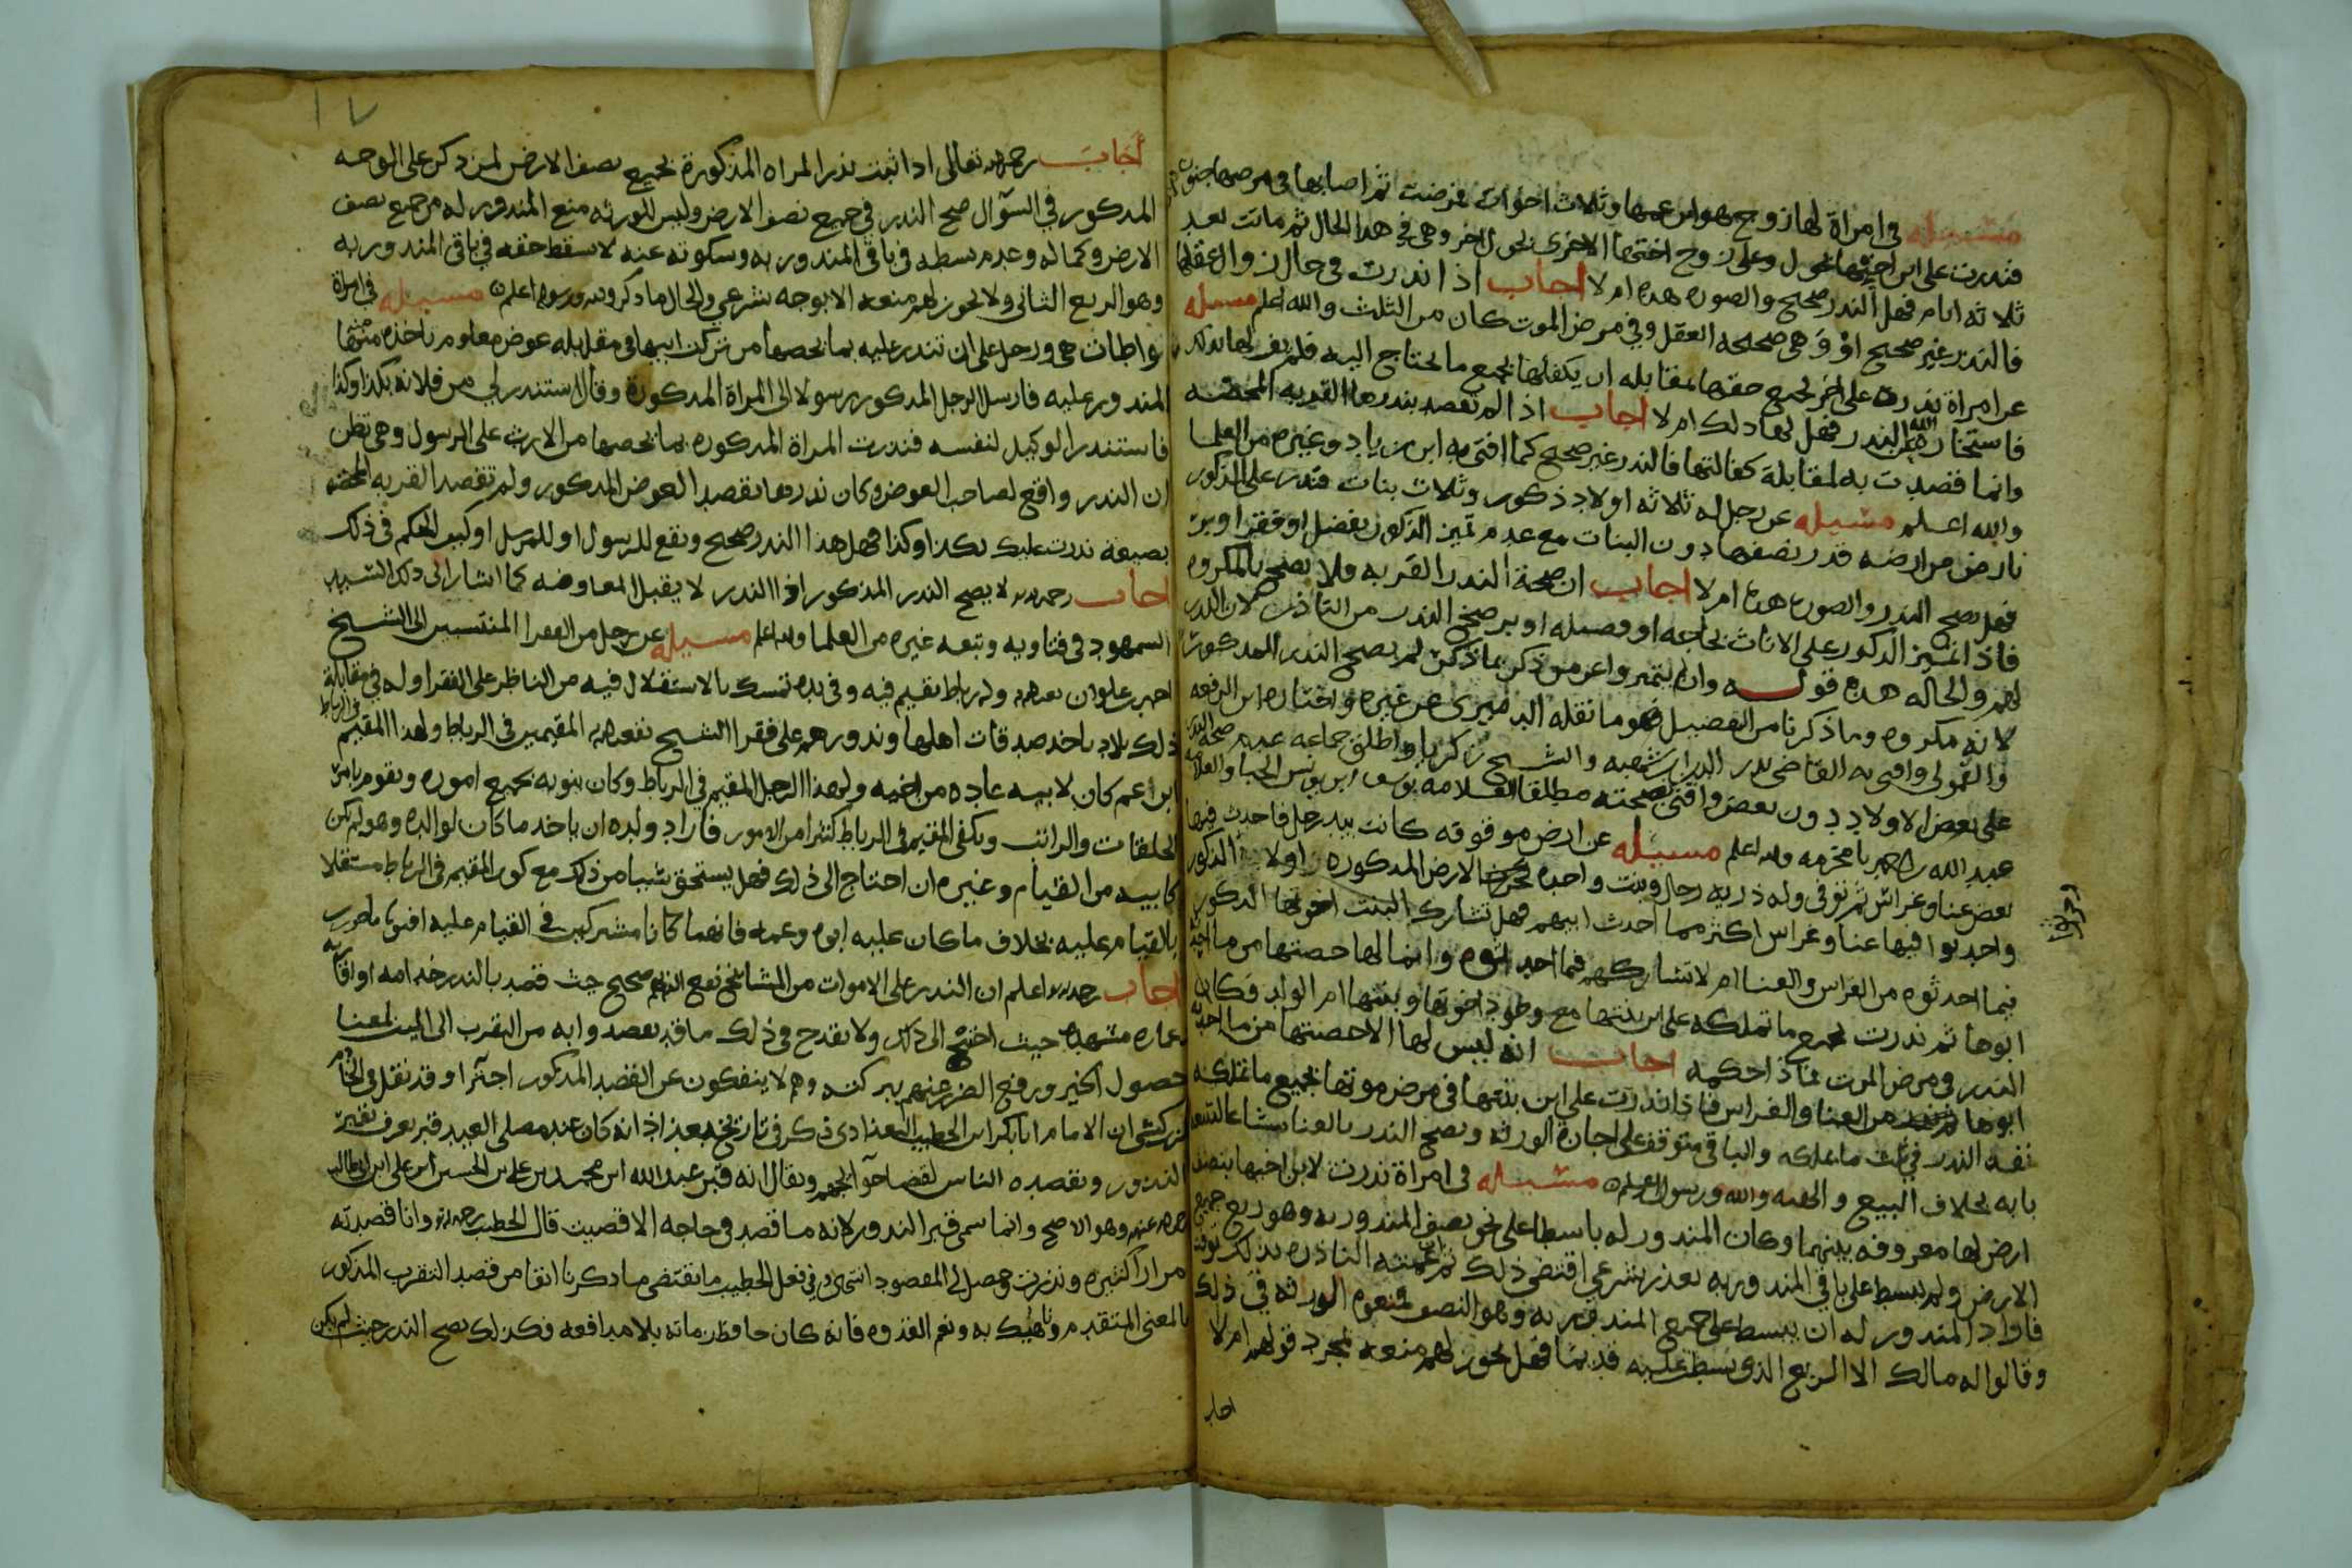 مسئله في امراة لها زوج هو ابن عمها وثلاث اخوات فمرضت ثم اصابها في مرضها جنون
فندرت على ابن اختها بمحول وعلى زوج اختها الاخرى بمحول اخر وهي في هذا الحال ثم ماتت بعد
ثلاثه ايام فهل الندر صحيح والصوره هذه ام لا اجاب اذا ندرت في حال زوال عقلها
فالندر غير صحيح او وهي صحيحه العقل وفي مرض الموت كان من الثلث والله اعلم مسئله
عن امراة ندرت على اخر بجميع حقها بمقابله ان يكفلها بجميع ما يحتاج اليه فلم يف لها بذلك
فاستخارت الله الندر فهل لها ذلك ام لا اجاب اذا لم تقصد بندرها القربه المحضه
وانما قصدت به لمقابلة كفالتها فالندر غير صحيح كما افتى به ابن زياد وغيره من العلما
والله اعلم مسئله عن رجل له ثلاثه اولاد ذكور وثلاث بنات فندر على الذكور
بارض من ارضه قدر نصفها دون البنات مع عدم تميز الذكور بفضل او فقر او بر
فهل يصح الندر والصوره هذه ام لا اجاب ان صحة الندر القربه فلا يصح بالمكروه
فاذا تميز الذكور على الاناث بحاجه او فضيله او بر صح الندر من الناذر لان الندر
لهم والحاله هذه قوله وان لم يتميز واعن من ذكر بما ذكر لم يصح الندر المدكور
لانه مكروه وما ذكرنا من التفصيل هو ما نقله الدميري عن غيره واختاره ابن الرفعه
والقمولي وافتى به القاضي بدر الدين ابن شهبه والشيخ زكريا واطلق جماعه عدم صحة الندر
على بعض الاولاد دون بعض وافتى بصحته مطلقا العلامه يوسف ابن يونس الحبا والعلامه
عبد الله بن عمر بامخرمه والله اعلم مسئله عن ارض موقوفه كانت بيد رجل فاحدث فيها
بعض عنا وغراس ثم توفي وله ذريه رجال وبنت واحده الارض المدكوره اولاده الذكور
واحدثوا فيها عنا وغراس اكثر مما احدث ابيهم فهل تشارك البنت اخوتها الذكور
فيما احدثوه من الغراس والعنا ام لا تشاركهم فيما احدثوه وانما لها حصتها من ما احدثه
ابوها ثم ندرت بجميع ما تملكه على ابن بنتها مع وجود اخوتها وبنتها ام الولد فكان
الندر في مرض الموت فماذا حكمه اجاب انه ليس لها الا حصتها من ما احدثه
ابوها من العنا والغراس فاذا ندرت على ابن بنتها في مرض موتها بجميع ما تملكه
نفد الندر في ثلث ما تملكه والباقي متوقف على اجازه الورثه ويصح الندر بالعنا
بابه بخلاف البيع والهبه والله ورسوله اعلم مسئله في امراة ندرت لابن اخيها بنصف
ارض لها معروفه بينهما وكان المندور له باسطا على نحو نصف المندور به وهو ربع جميع
الارض ولم يبسط على باقي المندور به بعذر شرعي اقتضى ذلك ثم عمته الناذره بذلك توفت
فاراد المندور له ان يبسط على جميع المندور به وهو النصف فمنعوه الورثه في ذلك
وقالوا له مالك الا الربع الذي بسطت عليه قديما فهل يجوز لهم منعه بمجرد قولهم ام لا
اجاب
اجاب رحمه الله تعالى اذا ثبت ندر المراه المذكورة بجميع نصف الارض لمن ذكر على الوجه
المدكور في السؤال صح الندر في جميع نصف الارض وليس للورثه منع المندور له من جميع نصف
الارض وكماله وعدم بسطه في باقي المندور به وسكوته عنه لا يسقط حقه في باقي المندور به
وهو الربع الثاني ولا يجوز لهم منعه الا بوجه شرعي والحال ما ذكر والله ورسوله اعلم مسئله في امراة
تواطات هي ورجل على ان تندر عليه بما يخصها من تركت ابيها في مقابله عوض معلوم تاخذه من
المندور عليه فارسل الرجل المدكور رسولا الى المراة المدكورة وقال استندر لي من فلانه بكذا وكذا
فاستندر الوكيل لنفسه فندرت المراة المدكوره بما يخصها من الارث على الرسول وهي تظن
ان الندر واقع لصاحب العوض وكان ندرها بقصد العوض المدكور ولم تقصد القربه المحضه
بصيغة ندرت عليك بكذا وكذا فهل هذا الندر صحيح ويقع للرسول او للمرسل او كيف الحكم في ذلك
اجاب رحمه الله لا يصح الندر المذكور اذ الندر لا يقبل المعاوضه كما اشار الى ذلك السيد
السمهودي في فتاويه وتبعه غيره من العلما والله اعلم مسئله عن رجل من الفقرا المنتسبين الى الشيخ
احمد بن علوان نفع الله به وله رباط يقيم فيه وفي يده تمسك بالاستقلال فيه من الناظر على الفقرا وله في مقابلة
ذلك بلاد ياخد صدقات اهلها وندورهم على فقرا الشيخ نفع الله به المقيمين في الرباط ولهذا المقيم في الرباط
ابن اعم كان لابيه عاده من اخيه ولهذا الرجل المقيم في الرباط وكان ينوبه بجميع اموره ويقوم بامر
الحلقات والراتب ويكفي المقيم في الرباط كثيرا من الامور فاراد ولده ان ياخد ما كان لوالده وهو لم يكن
كابيه من القيام وغيره ان احتاج الى ذلك فهل يستحق شيا من ذلك مع كون المقيم في الرباط مستقلا
بالقيام عليه بخلاف ما كان عليه ابوه وعمه فانهما كانا مشتركين في القيام عليه افتونا ماجورين
اجاب رحمه الله اعلم ان الندر على الاموات من المشايخ نفع الله بهم صحيح حيث قصد بالندر خدامه او اقاربه
او عماره مشهده حيث احتيج الى ذلك ولا يقدح في ذلك ما قد يقصدوا به من التقرب الى الميت لمعنا
حصول الخير ورفع الضر عنهم ببركته وهم لا ينفكون عن القصد المدكور اجترا وقد نقل في الخادم
الزركشي ان الامام ابا بكر ابن الخطيب البغدادي ذكر في تاريخ بغداذ انه كان عند مصلى العيد قبر يعرف بقبر
الندور ويقصده الناس لقضا حوايجهم ويقال انه قبر عبد الله ابن محمد بن علي بن الحسين ابن علي ابن ابي طالب
رضي الله عنهم وهو الاصح وانما سمي قبر الندور لانه ما قصد في حاجه الا قضيت قال الخطيب رحمه الله وانا قصدته
مرارا كثيره وندرت وحصل لي المقصود انتهى وفي فعل الخطيب ما يقتضي ما ذكرنا انفا من قصد التقرب المذكور
بالمعنى المتقدم وناهيك به ونعم القدوه فانه كان حافظ زمانه بلا مدافعه فكذلك يصح الندر حيث لم يكن